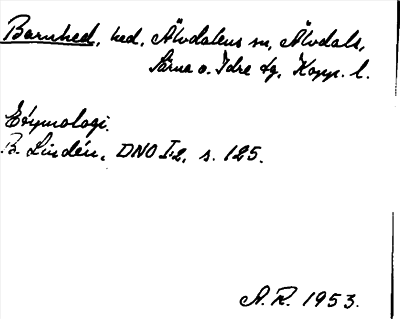 Barnhed, hed, Älvdalens sn, Älvdals,
Särna o. Idre tg, Kopp. l.
Etymologi.
B. Lindén, DNO I:2, s. 125.
A. R. 1953.